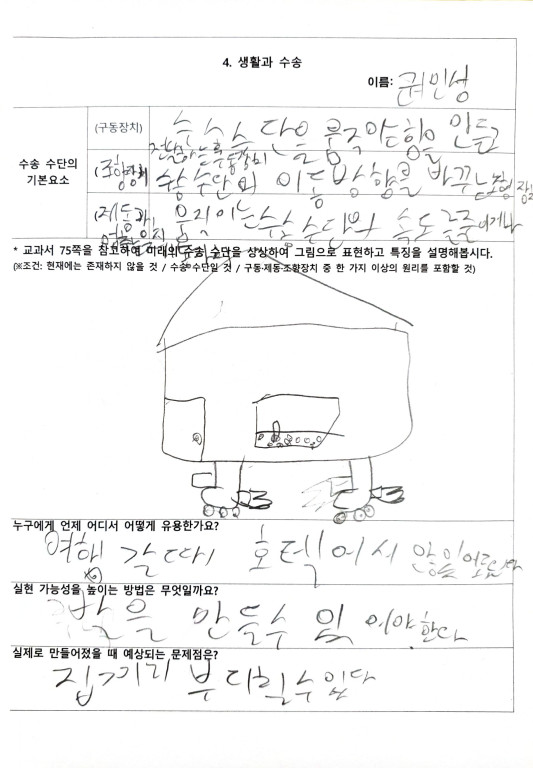 4. 생활과 수송
이름: 권민성
수송 수단의
기본요소
(구동장치)
수송 수단을 움직이는 힘을 만들고
전달하는
(조향장치)
수송 수단의 이동 방향을 바꾸는
(제동과
움직이는 수송 수단의 속도를 줄이거나
* 교과서 75쪽을 참고하여 미래의 수송 수단을 상상하여 그림으로 표현하고 특징을 설명해봅시다.
(※조건: 현재에는 존재하지 않을 것 / 수송 수단일 것 / 구동·제동·조향장치 중 한 가지 이상의 원리를 포함할 것)
누구에게 언제 어디서 어떻게 유용한가요?
여행 갈 때 호텔에서
실현 가능성을 높이는 방법은 무엇일까요?
발을 만들수 있어야 한다
실제로 만들어졌을 때 예상되는 문제점은?
집끼리 부디힐수 있다